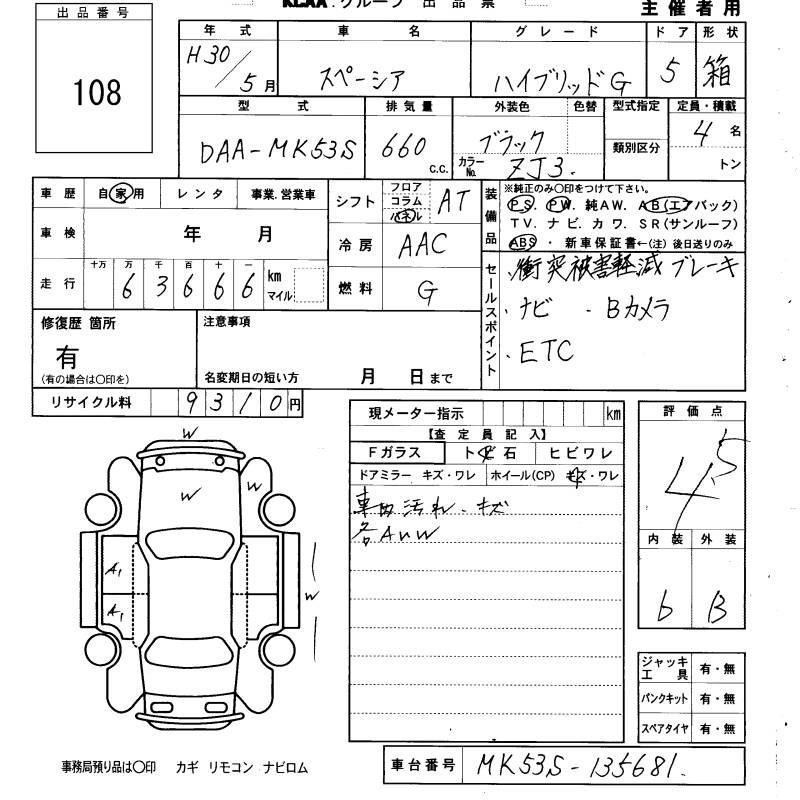 KCAA.グループ 出品票
主催者用
出品番号
108
年式 車名 グレード ドア 形状
H30/5月 スペーシア ハイブリッドG 5 箱
型式 排気量 外装色 色替 型式指定 定員・積載
DAA-MK53S 660 C.C. ブラック カラーNo. ZJ3. 類別区分 4名
トン
車歴 自家用 レンタ 事業.営業車
シフト フロア コラム パネル AT
装備品 ※純正のみ○印をつけて下さい。
P S. P W. 純AW. A B(エアバック)
T V. ナビ. カワ. S R(サンルーフ)
ABS ・ 新車保証書←(注) 後日送りのみ
車検 年 月
冷房 AAC
走行 十万 万 千 百 十 一
63666 km マイル
燃料 G
セールスポイント
・衝突被害軽減ブレーキ
・ナビ ・Bカメラ
・ETC
修復歴 箇所
有
(有の場合は○印を)
注意事項
名変期日の短い方 月 日まで
リサイクル料 9310円
現メーター指示 km
【査定員記入】
Fガラス ト ビ 石 ヒビワレ
ドアミラー キズ・ワレ ホイール(CP) キズ・ワレ
車内汚れ、キズ
各AUW
評価点
4.5
内装 外装
b B
W
W
W
A1
A1
W
ジャッキ工具 有・無
パンクキット 有・無
スペアタイヤ 有・無
事務局預り品は○印 カギ リモコン ナビロム
車台番号 MK53S-135681.